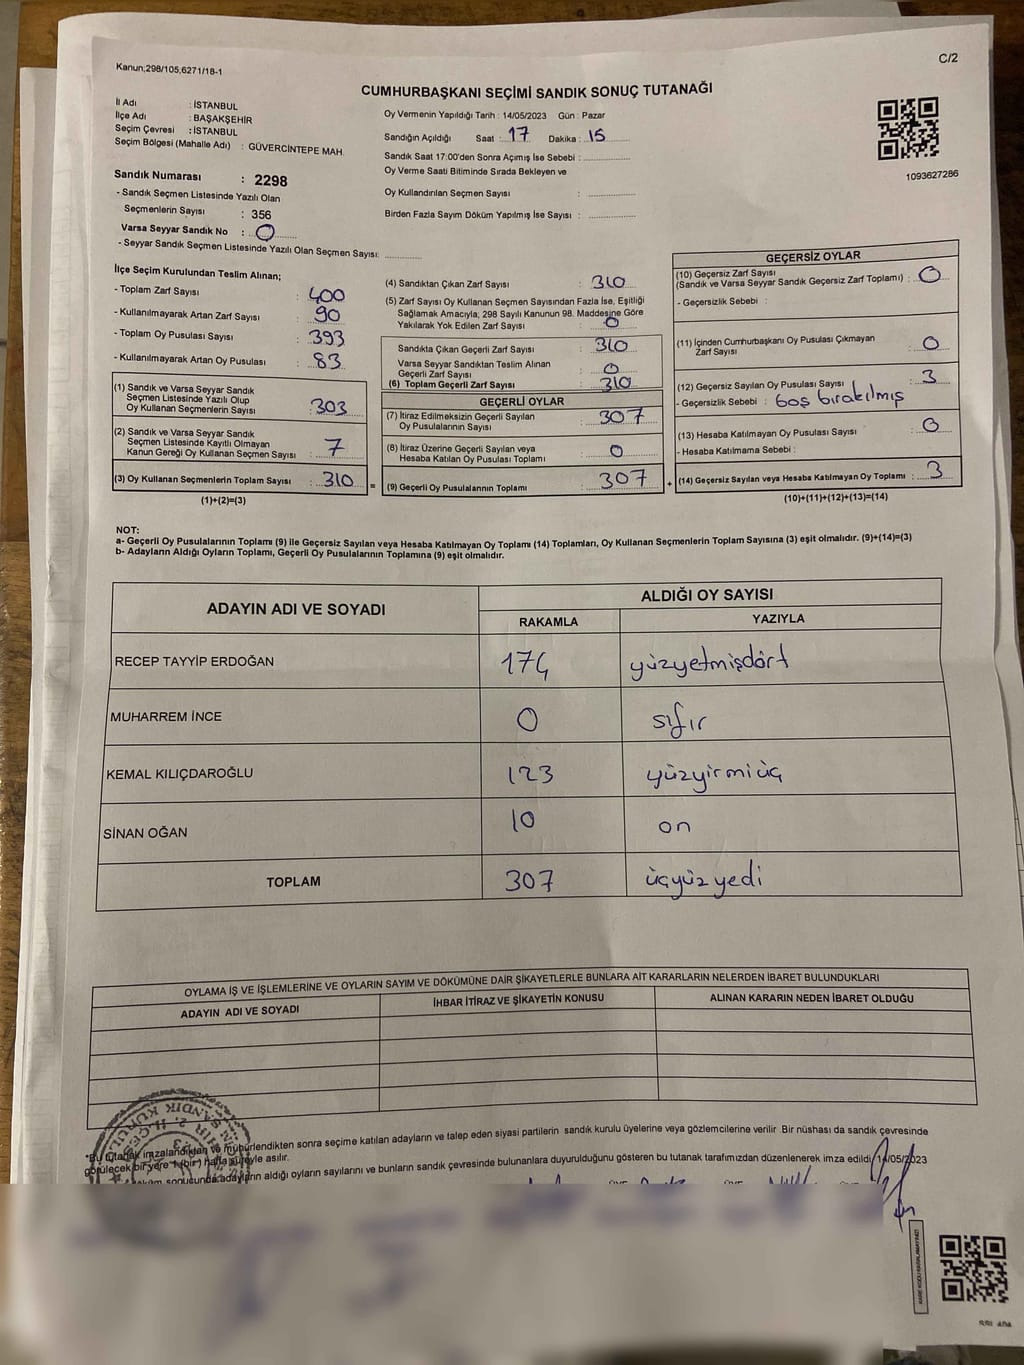 Kanun;298/105,6271/18-1
C/2
CUMHURBAŞKANI SEÇİMİ SANDIK SONUÇ TUTANAĞI
İl Adı : İSTANBUL
İlçe Adı : BAŞAKŞEHİR
Seçim Çevresi : İSTANBUL
Seçim Bölgesi (Mahalle Adı) : GÜVERCİNTEPE MAH.
Sandık Numarası : 2298
- Sandık Seçmen Listesinde Yazılı Olan
Seçmenlerin Sayısı : 356
Varsa Seyyar Sandık No : 0
- Seyyar Sandık Seçmen Listesinde Yazılı Olan Seçmen Sayısı:
Oy Vermenin Yapıldığı Tarih : 14/05/2023 Gün : Pazar
Sandığın Açıldığı Saat : 17 Dakika : 15
Sandık Saat 17:00'den Sonra Açımış İse Sebebi :
Oy Verme Saati Bitiminde Sırada Bekleyen ve
Oy Kullandırılan Seçmen Sayısı :
Birden Fazla Sayım Döküm Yapılmış İse Sayısı :
1093627286
İlçe Seçim Kurulundan Teslim Alınan;
- Toplam Zarf Sayısı : 400
- Kullanılmayarak Artan Zarf Sayısı : 90
- Toplam Oy Pusulası Sayısı : 393
- Kullanılmayarak Artan Oy Pusulası : 83
(1) Sandık ve Varsa Seyyar Sandık
Seçmen Listesinde Yazılı Olup
Oy Kullanan Seçmenlerin Sayısı : 303
(2) Sandık ve Varsa Seyyar Sandık
Seçmen Listesinde Kayıtlı Olmayan
Kanun Gereği Oy Kullanan Seçmen Sayısı : 7
(3) Oy Kullanan Seçmenlerin Toplam Sayısı : 310 =
(1)+(2)=(3)
(4) Sandıktan Çıkan Zarf Sayısı : 310
(5) Zarf Sayısı Oy Kullanan Seçmen Sayısından Fazla İse, Eşitliği
Sağlamak Amacıyla, 298 Sayılı Kanunun 98. Maddesine Göre
Yakılarak Yok Edilen Zarf Sayısı : 0
Sandıkta Çıkan Geçerli Zarf Sayısı : 310
Varsa Seyyar Sandıktan Teslim Alınan
Geçerli Zarf Sayısı : 0
(6) Toplam Geçerli Zarf Sayısı : 310
GEÇERLİ OYLAR
(7) İtiraz Edilmeksizin Geçerli Sayılan
Oy Pusulalarının Sayısı : 307
(8) İtiraz Üzerine Geçerli Sayılan veya
Hesaba Katılan Oy Pusulası Toplamı : 0
(9) Geçerli Oy Pusulalarının Toplamı : 307 +
GEÇERSİZ OYLAR
(10) Geçersiz Zarf Sayısı
(Sandık ve Varsa Seyyar Sandık Geçersiz Zarf Toplamı) : 0
- Geçersizlik Sebebi :
(11) İçinden Cumhurbaşkanı Oy Pusulası Çıkmayan
Zarf Sayısı : 0
(12) Geçersiz Sayılan Oy Pusulası Sayısı : 3
- Geçersizlik Sebebi : boş bırakılmış
(13) Hesaba Katılmayan Oy Pusulası Sayısı : 0
- Hesaba Katılmama Sebebi :
(14) Geçersiz Sayılan veya Hesaba Katılmayan Oy Toplamı : 3
(10)+(11)+(12)+(13)=(14)
NOT:
a- Geçerli Oy Pusulalarının Toplamı (9) ile Geçersiz Sayılan veya Hesaba Katılmayan Oy Toplamı (14) Toplamları, Oy Kullanan Seçmenlerin Toplam Sayısına (3) eşit olmalıdır. (9)+(14)=(3)
b- Adayların Aldığı Oyların Toplamı, Geçerli Oy Pusulalarının Toplamına (9) eşit olmalıdır.
ADAYIN ADI VE SOYADI
ALDIĞI OY SAYISI
RAKAMLA YAZIYLA
RECEP TAYYİP ERDOĞAN 174 yüzyetmişdört
MUHARREM İNCE 0 sıfır
KEMAL KILIÇDAROĞLU 123 yüzyirmiüç
SİNAN OĞAN 10 on
TOPLAM 307 üçyüzyedi
OYLAMA İŞ VE İŞLEMLERİNE VE OYLARIN SAYIM VE DÖKÜMÜNE DAİR ŞİKAYETLERLE BUNLARA AİT KARARLARIN NELERDEN İBARET BULUNDUKLARI
ADAYIN ADI VE SOYADI İHBAR İTİRAZ VE ŞİKAYETİN KONUSU ALINAN KARARIN NEDEN İBARET OLDUĞU
*Bu tutanak imzalandıktan ve mühürlendikten sonra seçime katılan adayların ve talep eden siyasi partilerin sandık kurulu üyelerine veya gözlemcilerine verilir Bir nüshası da sandık çevresinde
görülecek bir yere 1 (bir) hafta süreyle asılır.
sonucunda adayların aldığı oyların sayılarını ve bunların sandık çevresinde bulunanlara duyurulduğunu gösteren bu tutanak tarafımızdan düzenlenerek imza edildi. 14/05/2023